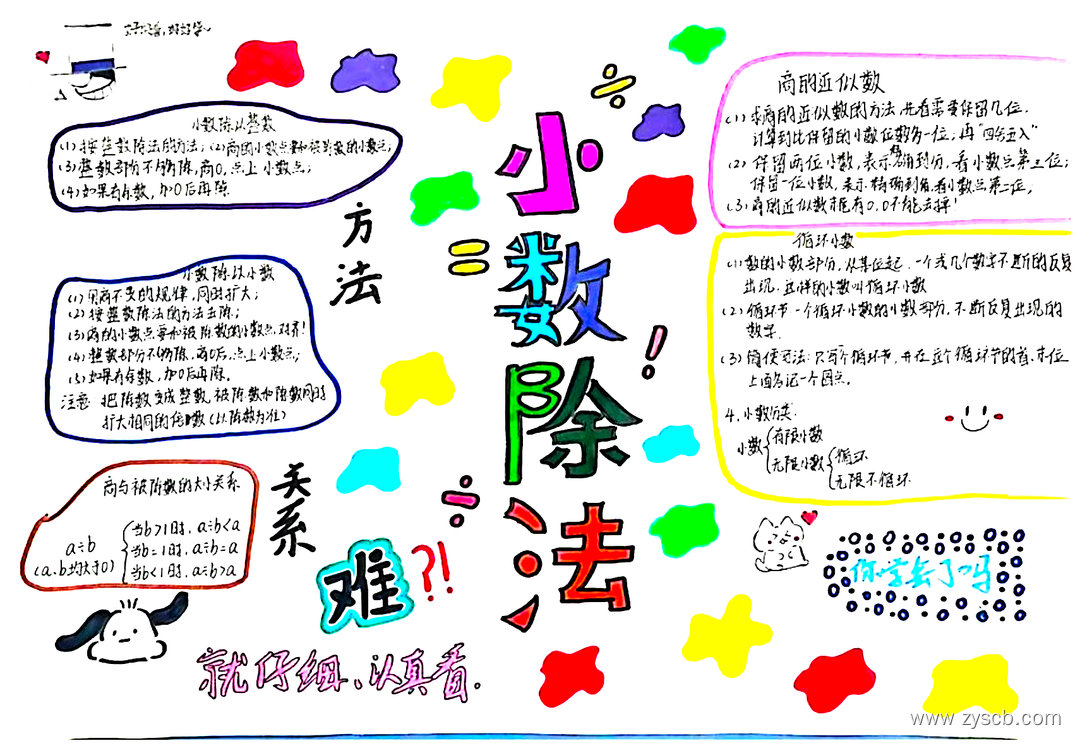 小数除以整数
(1)按整数除法的方法;(2)商的小数点要和被除数的小数点
(3)整数部分不够除,商0,点上小数点;
(4)如果有余数,加0后再除
方法
小数除以小数
(1)用商不变的规律,同时扩大;
(2)按整数除法的方法去除;
(3)商的小数点要和被除数的小数点对齐!
(4)整数部分不够除,商0后,点上小数点;
(5)如果有余数,加0后再除。
注意 把除数变成整数,被除数和除数同时
扩大相同的倍数(以除数为准)
商与被除数的大小关系
a÷b
(a、b均大于0)
当b>1时,a÷b<a
当b=1时,a÷b=a
当b<1时,a÷b>a
关系
难?!
就仔细、认真看.
小数除法
商的近似数
(1)求商的近似数的方法,先看需要保留几位,
计算到比保留的小数位数多一位,再"四舍五入"
(2)保留两位小数,表示精确到分,看小数点第三位;
保留一位小数,表示精确到角,看小数点第二位。
(3)商的近似数末尾有0,0不能去掉!
循环小数
(1)数的小数部分,从某位起.一个或几个数字不断的反复
出现.这样的小数叫循环小数
(2)循环节一个循环小数的小数部分,不断反复出现的
数字.
(3)简便写法:只写个循环节,并在这个循环节的首、末位
上面各记一个圆点。
4.小数分类.
小数
有限小数
无限小数
循环
无限不循环
你学会了吗
www.zyscb.com